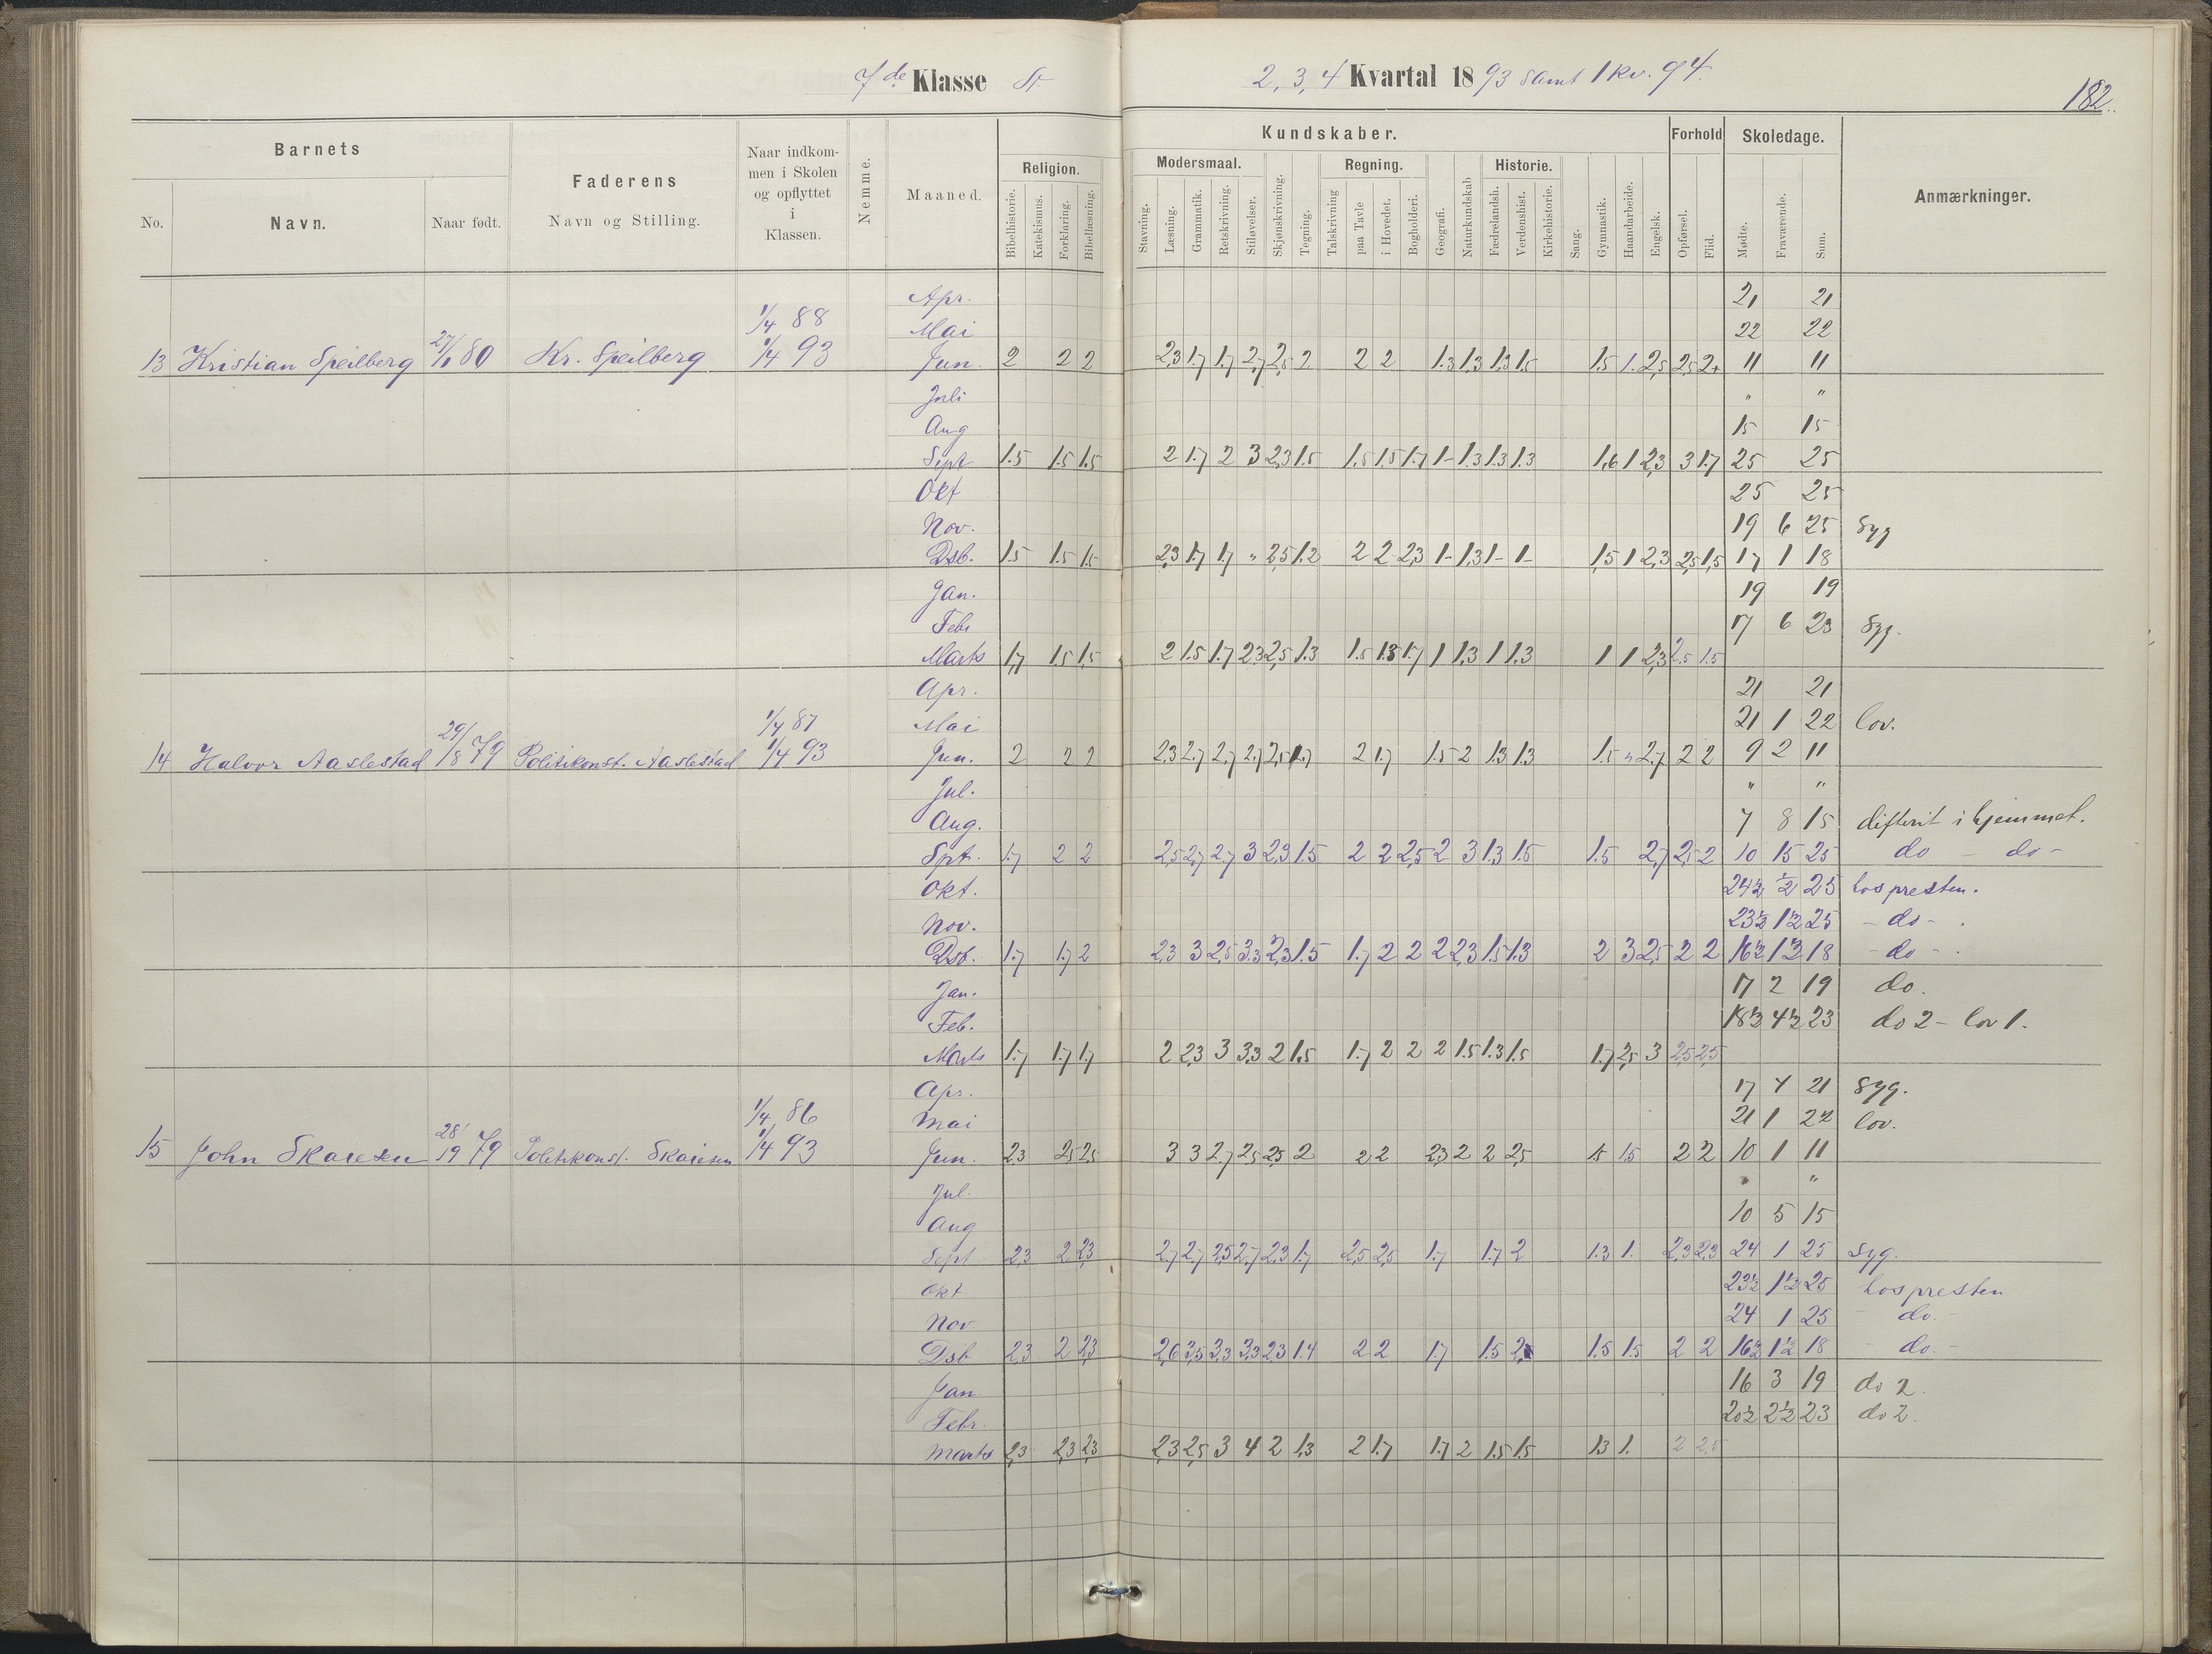 7de Klasse St. 2, 3, 4 Kvartal 1893 samt 1 kv. 94.
182.
Barnets
No. Navn. Naar født.
Faderens
Navn og Stilling.
Naar indkom-
men i Skolen
og opflyttet
i
Klassen.
Nemme.
Maaned.
Kundskaber.
Religion.
Bibelhistorie. Katekismus. Forklaring. Bibellæsning.
Modersmaal.
Stavning. Læsning. Grammatik. Retskrivning. Stiløvelser. Skjønskrivning. Tegning.
Regning.
Talskrivning paa Tavle i Hovedet. Bogholderi. Geografi. Naturkundskab
Historie.
Fædrelandsh. Verdenshist. Kirkehistorie. Sang. Gymnastik. Haandarbeide. Engelsk.
Forhold
Opførsel. Flid.
Skoledage.
Mødte. Fraværende. Sum.
Anmærkninger.
Apr. 21 21
1/4 88 Mai 22 22
13 Kristian Speilberg 27/1 80 Kr. Speilberg 1/4 93 Jun 2 2 2 2,3 1.7 1.7 2,7 2,5 2 2 2 1.3 1.3 1.3 1.5 1.5 1. 2,5 2,5 2+ 11 11
Juli " "
Aug 15 15
Sept 1.5 1.5 1.5 2 1.7 2 3 2,3 1.5 1.5 1.5 1.7 1- 1.3 1.3 1.3 1,6 1 2,3 3 1.7 25 25
Okt 25 25
Nov. 19 6 25 Syg
Dsb. 1.5 1.5 1.5 2,3 1.7 1.7 " 2,5 1.2 2 2 2,3 1- 1,3 1- 1- 1,5 1 2,3 2,5 1,5 17 1 18
Jan. 19 19
Febr 17 6 23 Syg.
Marts 1,7 1.5 1,5 2 1.5 1.7 2,3 2,5 1.3 1.5 1.3 1.7 1 1,3 1 1.3 1 1 2,3 2.5 1.5
Apr. 21 21
1/4 87 Mai 21 1 22 lov.
14 Halvor Aaslestad 29/8 79 Politikonst. Aaslestad 1/4 93 Jun. 2 2 2 2,3 2.7 2,7 2,7 2,5 1.7 2 1.7 1.5 2 1.3 1.3 1.5 " 2,7 2 2 9 2 11
Jul. " "
Aug. 7 8 15 difterit i hjemmet.
Spt. 1.7 2 2 2,5 2,7 2,7 3 2,3 1.5 2 2 2,5 2 3 1.3 1.5 1.5 2,7 2,5 2 10 15 25 do - do -
Okt. 24½ ½ 25 hos presten.
Nov. 23½ 1½ 25 - do - .
Dsb. 1.7 1.7 2 2,3 3 2,5 3.3 2,3 1.5 1.7 2 2 2 2,3 1.5 1.3 2 3 2,5 2 2 16½ 1½ 18 - do - .
Jan. 17 2 19 do.
Feb. 18½ 4½ 23 do 2 - lov 1.
Marts 1.7 1.7 1.7 2 2,3 3 3,3 2 1.5 1.7 2 2 2 1.5 1.3 1.5 1.7 2,5 3 2,5 2,5
Apr. 17 4 21 Syg.
1/4 86 Mai 21 1 22 lov.
15 John Skaiesen 28/9 79 Politikonst. Skaiesen 1/4 93 Jun. 2,3 2,5 2,5 3 3 2,7 2,5 2,5 2 2 2 2,3 2 2 2,5 1.5 1.5 2 2 10 1 11
Jul. " "
Aug 10 5 15
Sept 2,3 2 2,3 2,7 2,7 2,5 2,7 2,3 1.7 2,5 2,5 1.7 1.7 2 1.3 1. 2,3 2,3 24 1 25 Syg.
Okt 23½ 1½ 25 hos presten
Nov 24 1 25 - do. -
Dsb 2,3 2 2,3 2,6 3,5 3.3 3,3 2,3 1.4 2 2 1.7 1.5 2 1.5 1.5 2 2 16½ 1½ 18 - do. -
Jan 16 3 19 do 2.
Febr. 20½ 2½ 23 do 2.
Marts 2,3 2,3 2,3 2,3 2,5 3 4 2 1,3 2 1.7 1.7 2 1.5 1.5 1.3 1. 2 2,5